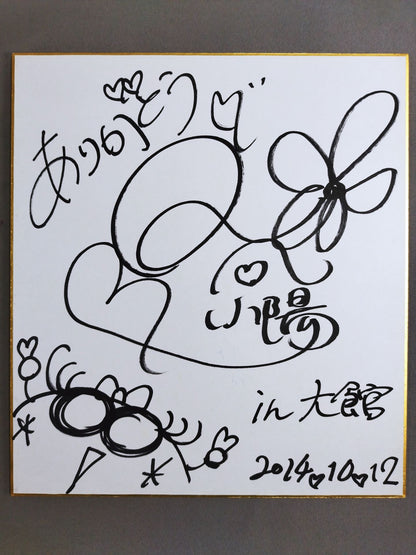 ありがとう
小陽
in 大館
2014♡10♡12